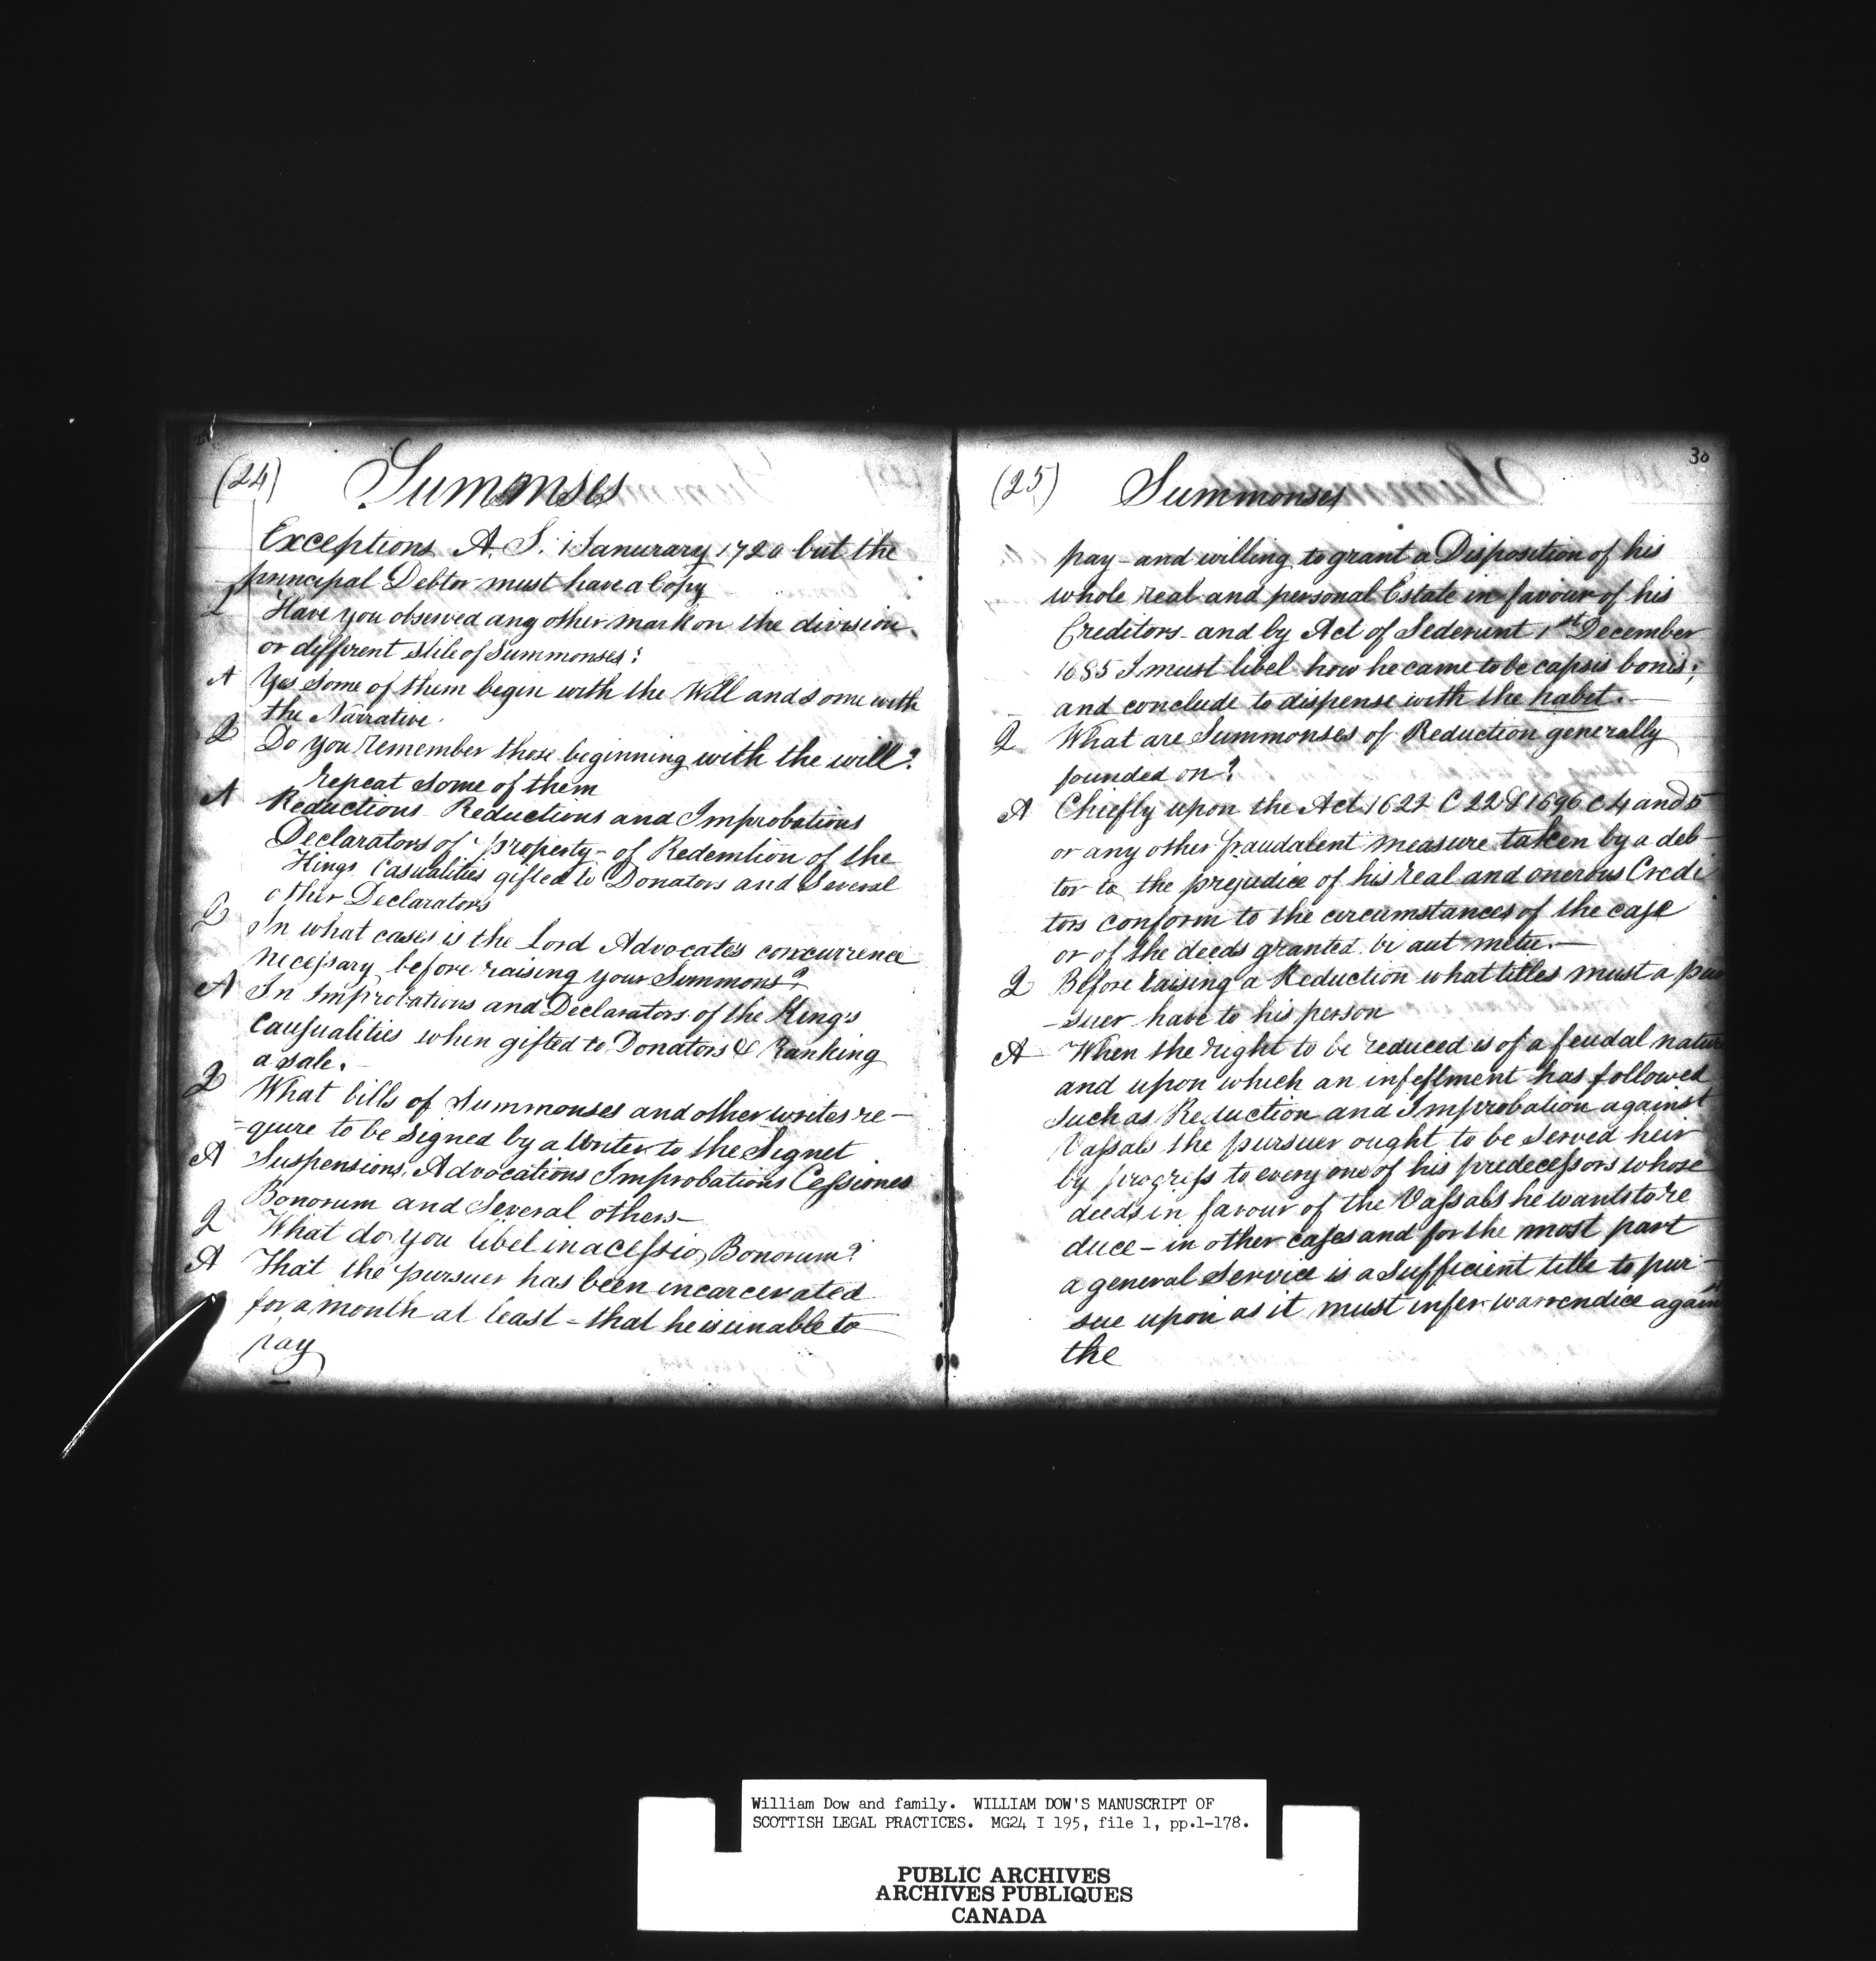 (24) Summonses
Exceptions A. S. 1 Janurary 1720 but the
principal Debtor must have a Copy
Q Have you observed any other mark on the division
or different stile of Summonses?
A Yes Some of them begin with the Will and Some with
the Narrative.
Q Do you remember those beginning with the will?
repeat Some of them
A Reductions Reductions and Improbations
Declarators of property - of Redemtion of the
Kings Casualities gifted to Donators and Several
other Declarators
Q In what cases is the Lord Advocates concurrence
necessary before raising your Summons?
A In Improbations and Declarators of the King's
Causualities when gifted to Donators & Ranking
a sale.
Q What bills of Summonses and other writes re-
-quire to be Signed by a Writer to the Signet
A Suspensions, Advocations Improbations Cessiones
Bonorum and Several others-
Q What do you libel in a cessio Bonorum?
A That the pursuer has been incarcerated
for a month at least - that he is unable to
pay
30
(25) Summonses
pay - and willing to grant a Disposition of his
whole real and personal Estate in favour of his
Creditors - and by Act of Sederunt 1st December
1685 I must libel how he came to be capsis bonis;
and conclude to dispense with the habit.-
Q What are Summonses of Reduction generally
founded on?
A Chiefly upon the Act 1622 C 22 & 1696 c 4 and 5
or any other fraudalent measure taken by a deb-
tor to the prejudice of his real and onerous Credi
tors conform to the circumstances of the case
or of the deeds granted. vi aut metu.-
Q Before raising a Reduction what titles must a pur
-suer have to his person
A When the right to be reduced is of a feudal nature
and upon which an infeftment has followed
Such as Reduction and Improbation against
Vassals the pursuer ought to be Served heir
by progress to every one of his predecessors whose
deeds in favour of the Vassals he wants to re
duce - in other cases and for the most part
a general Service is a Sufficient title to pur-
sue upon as it must infer warrendice against
the
William Dow and family. WILLIAM DOW'S MANUSCRIPT OF
SCOTTISH LEGAL PRACTICES. MG24 I 195, file 1, pp.1-178.
PUBLIC ARCHIVES
ARCHIVES PUBLIQUES
CANADA